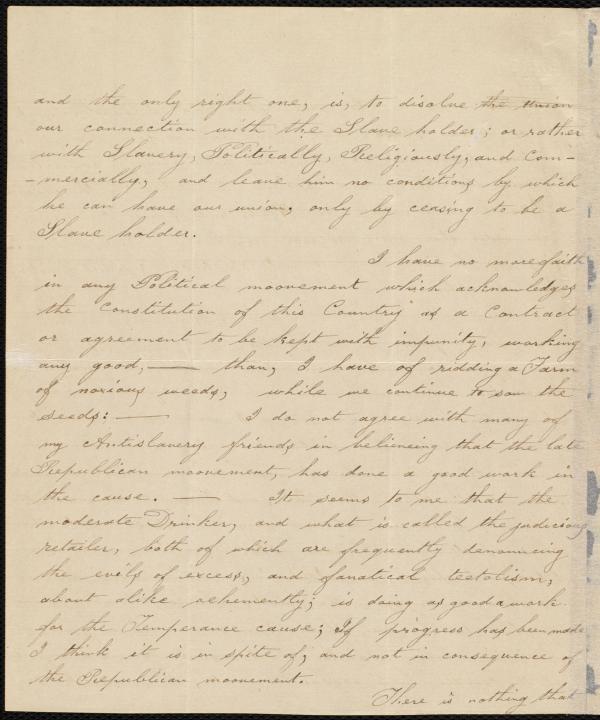 and the only right one, is, to disolve the union
our connection with the Slave holder; or rather
with Slavery, Politically, Religiously, and Com-
-mercially, and leave him no conditions by which
he can have our union, only by ceasing to be a
Slave holder.
I have no more faith
in any Political moovement which acknowledges
the Constitution of this Country as a Contract
or agreement to be kept with impunity, working
any good, — than, I have of ridding a Farm
of noxious weeds, while we continue to sow the
seeds: — I do not agree with many of
my Antislavery friends in believeing that the late
Republican moovement, has done a good work in
the cause. — It seems to me that the
moderate Drinker, and what is called the judicious
retailer, both of which are frequently denouncing
the evils of excess, and fanatical teetolism,
about alike vehemently; is doing as good a work
for the Temperance cause; If progress has been made
I think it is in spite of, and not in consequence of
the Republican moovement.
There is nothing that